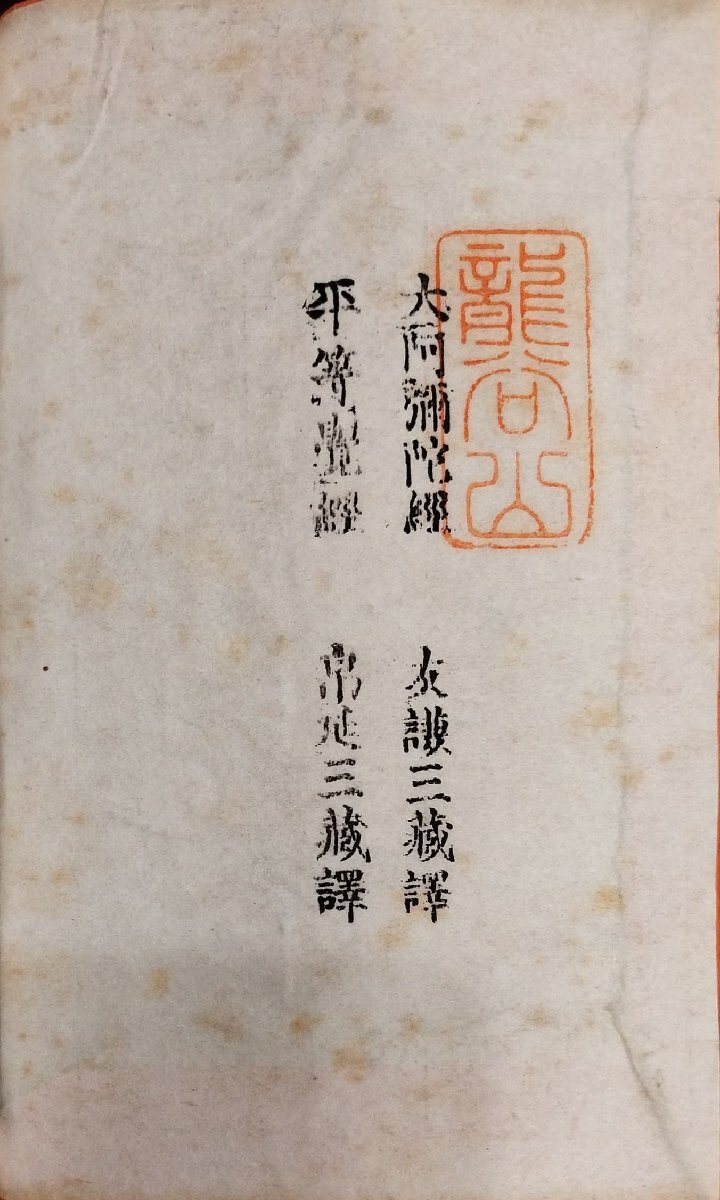 龍谷山
大阿彌陀經 友謙三藏譯
平等覺經 帛延三藏譯